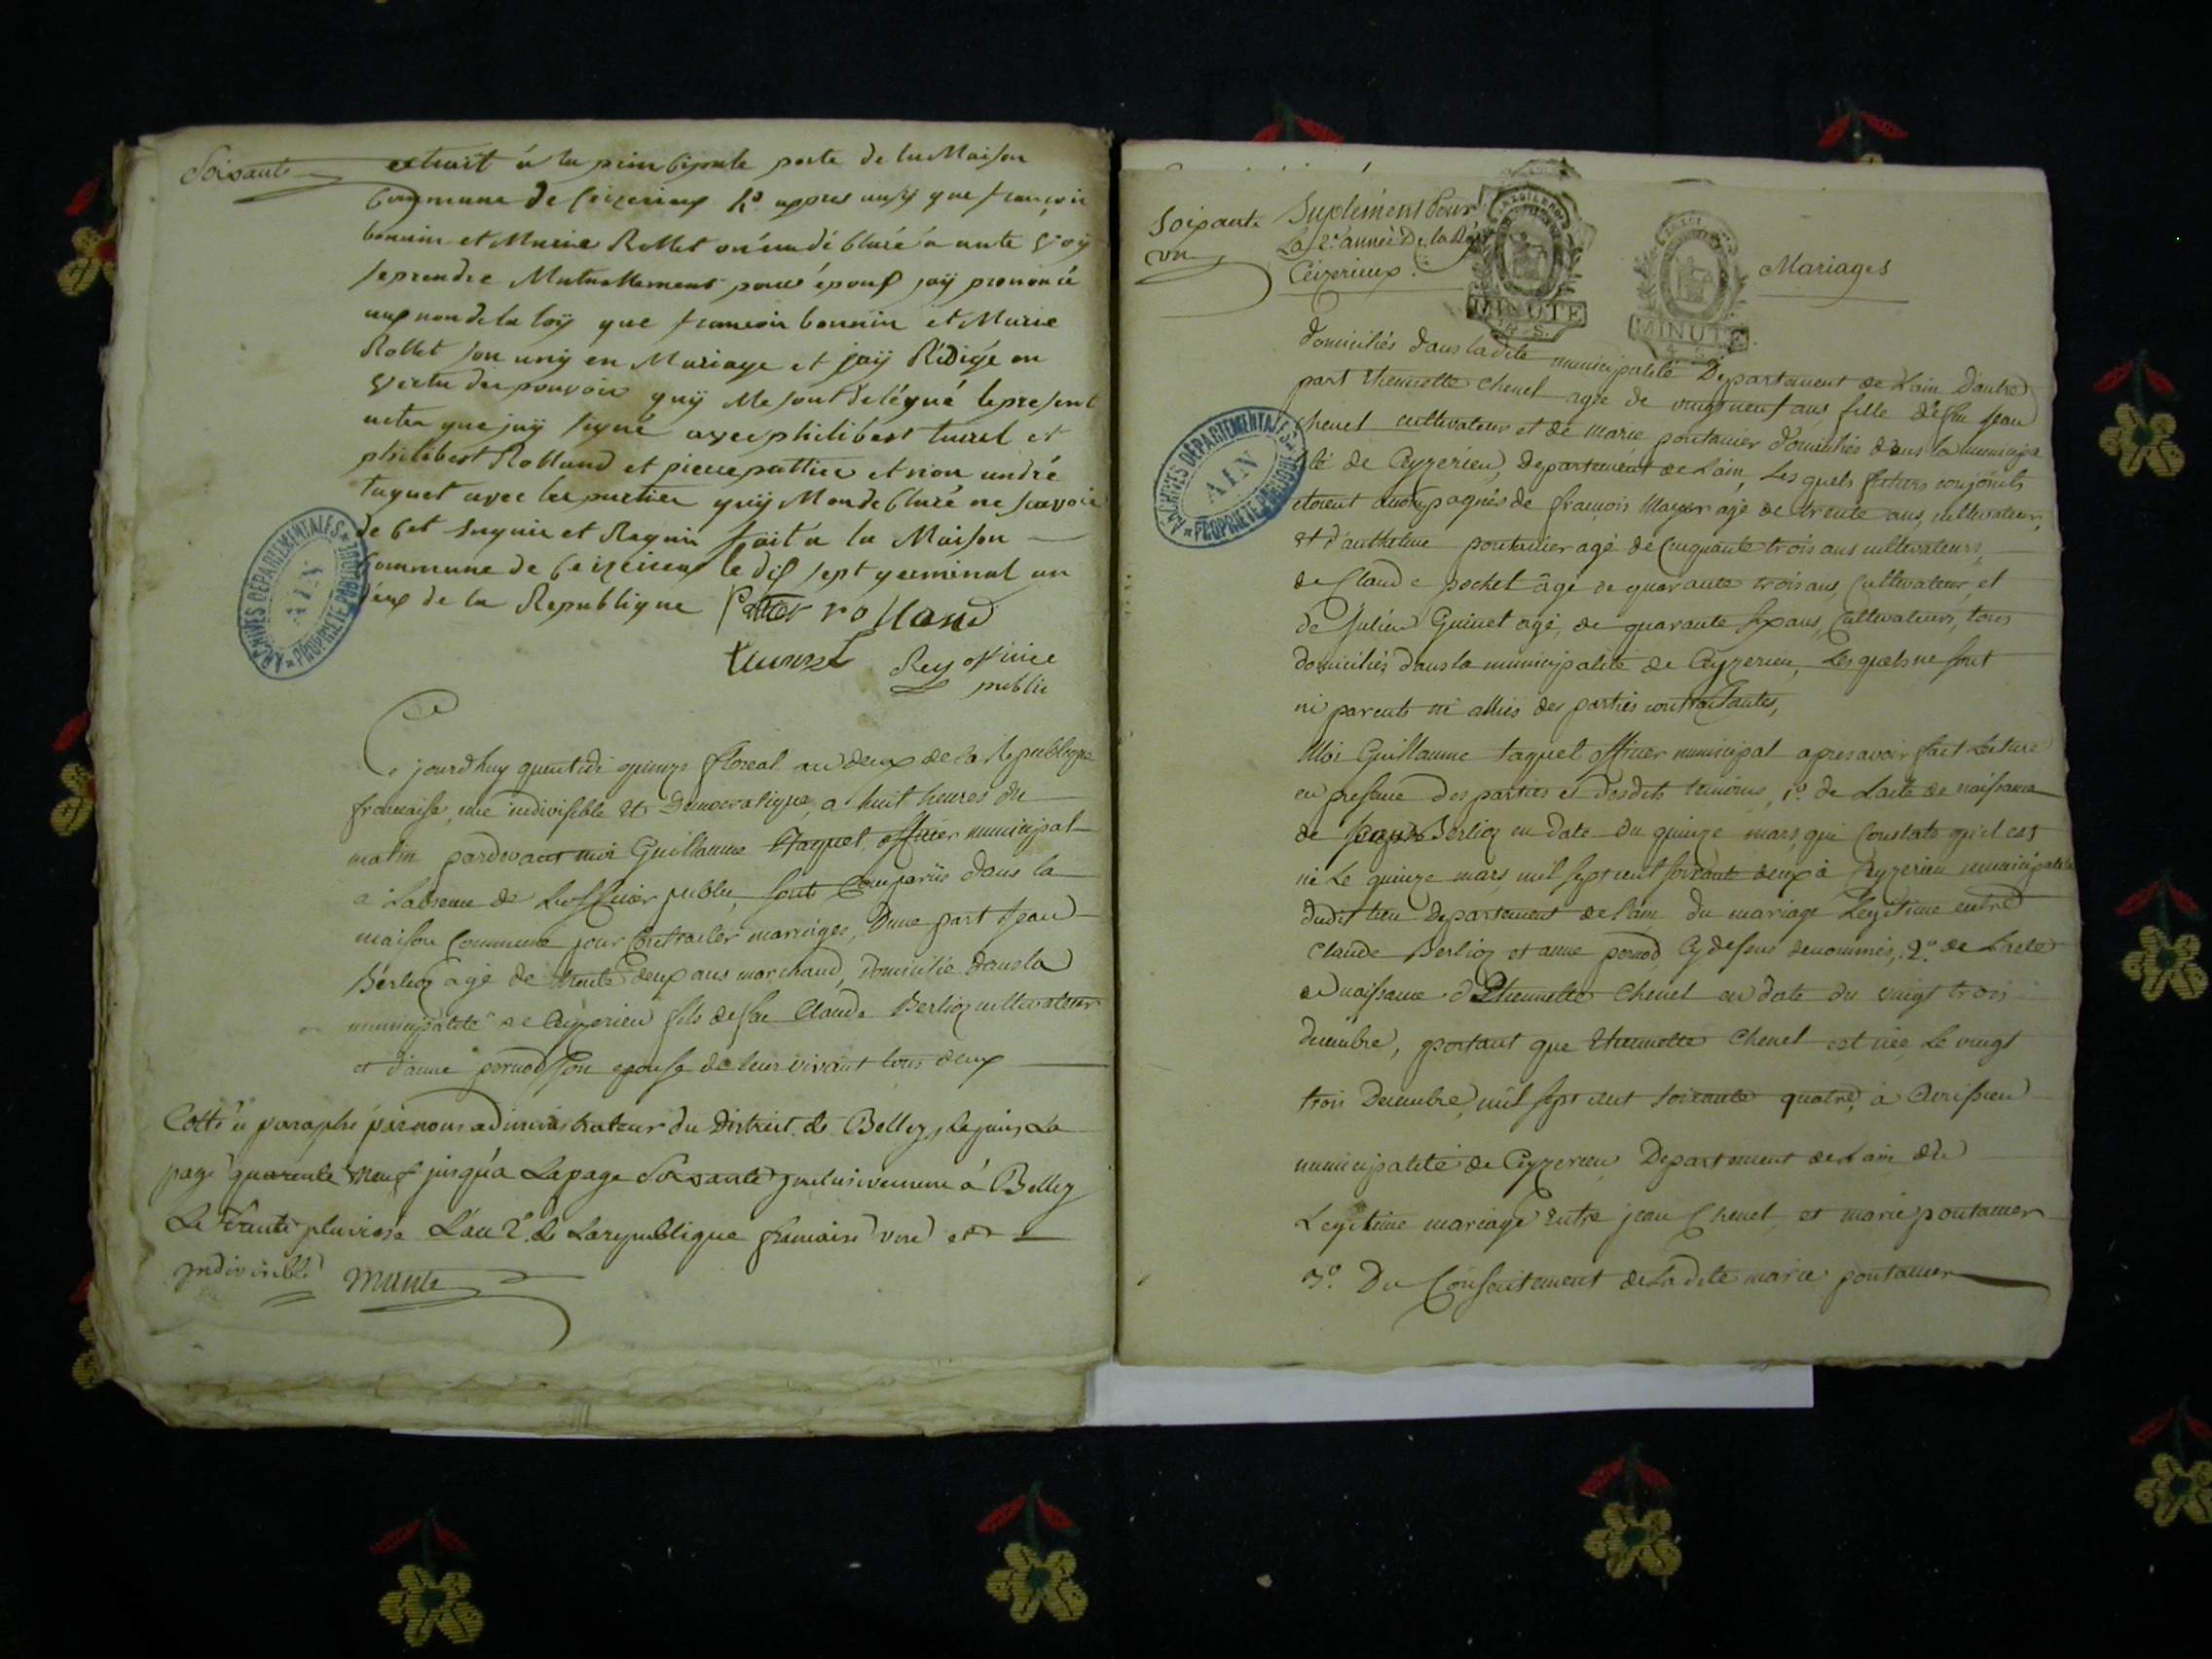 Soixante
extrait à la principale porte de la Maison
Commune de Ceizerieux 2º appres ausÿ que françois
bonnin et Marie Rollet on én dé Claré a aute Voÿ
se prendre Mutuellement pour épouf jaÿ prononcé
aux non de la loÿ que francois bonnin et Marie
Rollet son unÿ en Mariage et jaÿ Rédigé en
Vertu des pouvoir quÿ Me sont délégué le present
acte que jaÿ signé avec philibert turel et
philibert Rolland et pierre pattier et non andré
taquet avec les partier quÿ Mon de Claré ne savoir
de Cet fait a la Maison
Commune de Ceizerieux le dix sept germinal an
deux de la Republique Pattier rolland
Rey officie
public
Ce jourdhuy quintidi quinze floreal an deux de la Republique
francaise, une indivisible et Democratique, a huit heures du
matin pardevant moi Guillaume Taquet, officier municipal
a Labsence de Lofficier public, sont Comparus dans la
maison Commune pour Contracter mariage, Dune part Jean
Berlioz agé de trente deux ans marchand, Domicilié dans la
municipalité de Ceyzerieu fils de feu Claude Berlioz cultivateur
et d'anne pernod son epouse de leur vivant tous deux
Cotté et paraphé par nous administrateur du District de Belley, depuis La
page quarente neuf jusqu'a La page Soixante inclusivement à Belley
Le trente pluviose L'an 2e de La republique francaise une et
indivisible
ARCHIVES DÉPARTEMENTALES
AIN
PROPRIÉTÉ PUBLIQUE
Soixante
un
Suplément Pour
La 2e année De la Rép
Ceizerieux.
MINUTE
4 S.
MINUTE
4 S.
Mariages
domiciliés dans ladite municipalité Departement de Lain, D'autre
part Etiennette Chenel agée de vingt neuf ans, fille de feu Jean
Chenel cultivateur et de marie pontanier domiciliés dans la municipa
lité de Ceyzerieu, Departement de Lain, Les quels futurs conjoints
etoient accompagnés de françois Mayer agé de trente ans, cultivateur,
et d'anthelme pontanier agé de Cinquante trois ans cultivateurs,
de Claude pochet âgé de quarante trois ans, Cultivateur, et
de Julien Guinet agé, de quarante six ans, Cultivateurs, tous
domiciliés dans la municipalité de Ceyzerieu, Lesquels ne sont
ni parents ni alliés des parties contractantes,
Moi Guillaume taquet officier municipal apres avoir fait Lecture
en presence des parties et desdits temoins, 1º. de Lacte de naissance
de Jean Berlioz en date du quinze mars, qui Constate qu'il est
né Le quinze mars mil sept cent soixante deux à Ceyzerieu municipalité
dudit lieu Departement de l'ain du mariage Legitime entre
Claude Berlioz et anne pernod, Cy dessus denommés, 2º. de L'acte
de naissance d'Etiennette Chenel en date du vingt trois
decembre, portant que Etiennette Chenel est née Le vingt
trois Decembre, mil sept cent soixante quatre, à Avrissieu
municipalité de Ceyzerieu Departement de Lain du
Legitime mariage entre jean Chenel et marie pontanier
3º. Du Consentement de Ladite marie pontanier
ARCHIVES DÉPARTEMENTALES
AIN
PROPRIÉTÉ PUBLIQUE